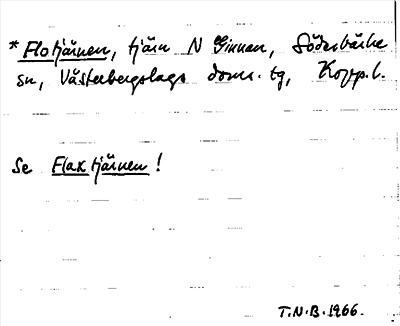 *Flotjärnen, tjärn N Ginnen, Söderbärke
sn, Västerbergslags doms. tg, Kopp. l.
Se Flaxtjärnen!
T.N.B. 1966.